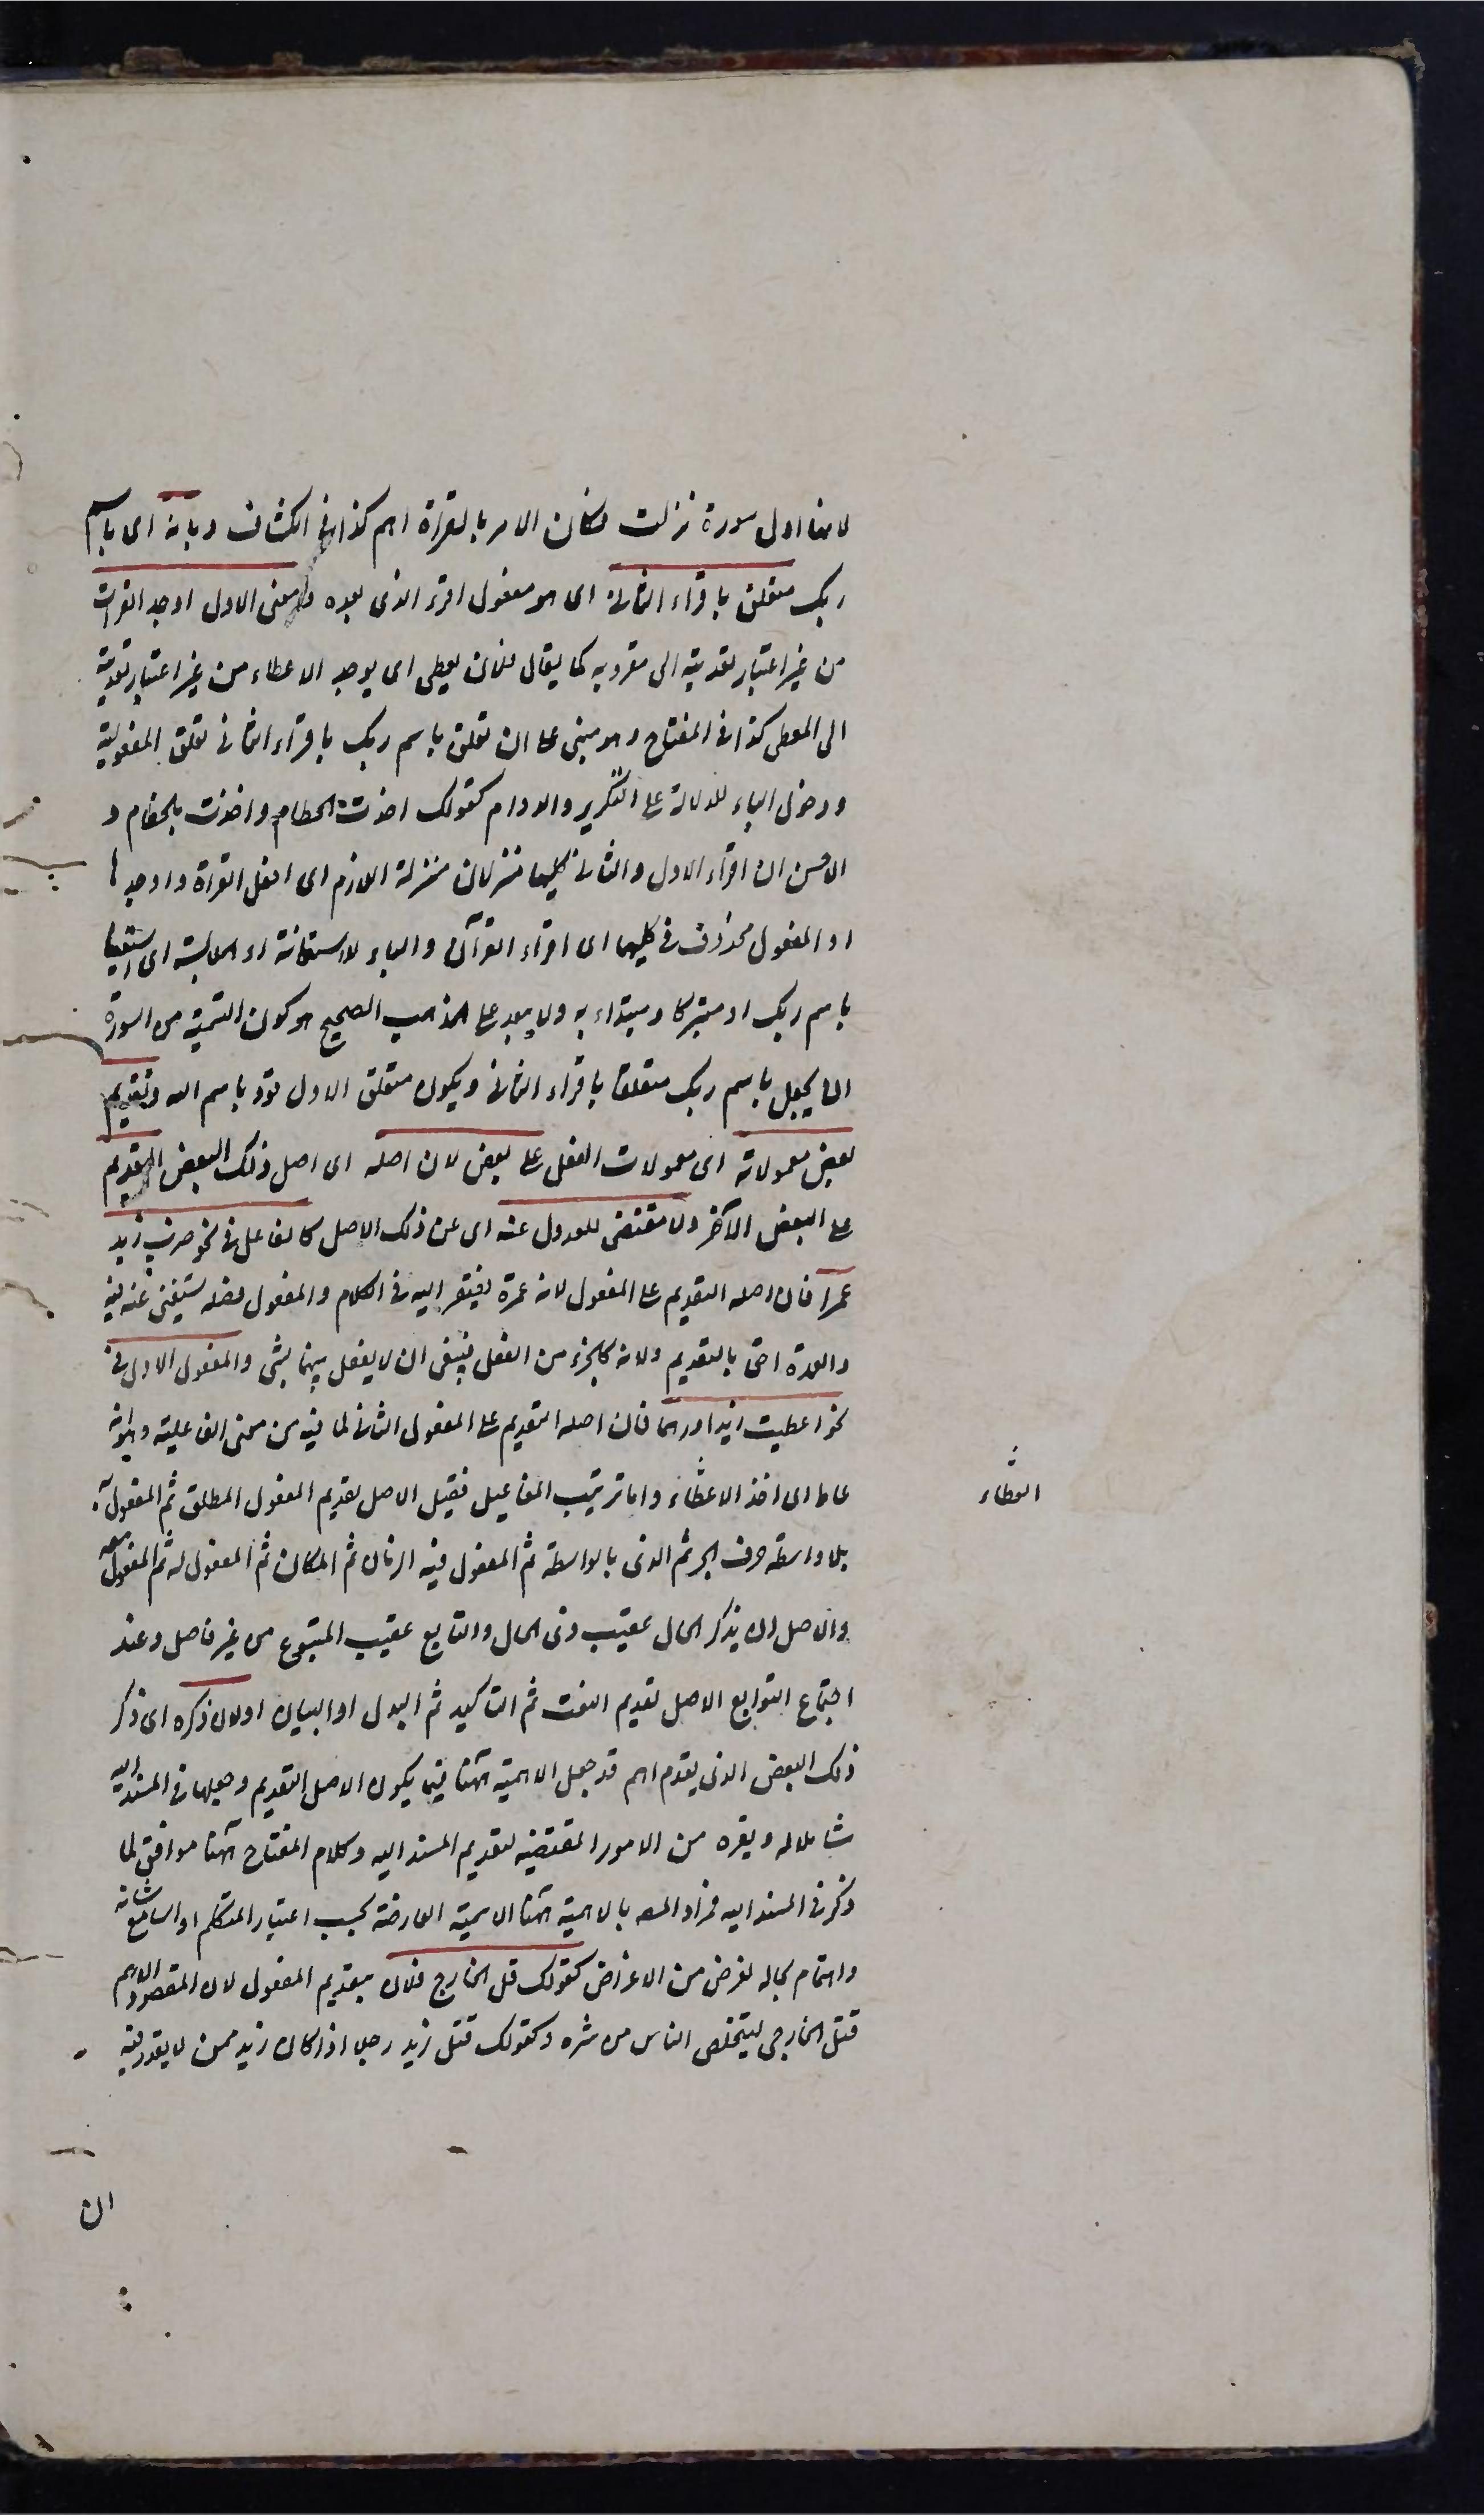 لانها اول سورة نزلت فكان الامر بالقراة اهم كذا فى الكشاف وبانه اى باسم
ربك متعلق باقراء الثانى اى هو مفعول اقرء الذى بعده ومعنى الاول اوجد القراءت
من غير اعتبار تعديته الى مقروبه كما يقال فلان يعطى اى يوجد الاعطاء من غير اعتبار تعديته
الى المعطى كذا فى المفتاح وهو مبنى على ان تعلق باسم ربك باقراء الثانى تعلق المفعولية
ودخول الباء للدلالة على التكرير والدوام كقولك اخذت الخطام واخذت بالخطام و
الاحسن ان اقراء الاول والثانى كليهما منزلان منزلة اللازم اى افعل القراة واوجدها
او المفعول محذوف فى كليهما اى اقراء القرآن والباء للاستعانة او الملابسة اى مستعينا
باسم ربك او متبركا ومبتداء به ولا يبعد على المذهب الصحيح هو كون التسمية من السورة
ان يجعل باسم ربك متعلقا باقراء الثانى ويكون متعلق الاول قوله باسم الله وتقديم
بعض معمولاته اى معمولات الفعل على بعض لان اصله اى اصل ذلك البعض التقديم
على البعض الآخر ولا مقتضى للعدول عنه اى عن ذلك الاصل كالفاعل فى نحو ضرب زيد
عمرا فان اصله التقديم على المفعول لانه عمدة يفتقر اليه فى الكلام والمفعول فضله يستغنى عنه فيه
والعمدة احق بالتقديم ولانه كالجزء من الفعل فينبغى ان لا يفصل بينهما بشى والمفعول الاول فى
نحو اعطيت زيدا درهما فان اصله التقديم على المفعول الثانى لما فيه من معنى الفاعلية وهو انه
عاط اى اخذ الاعطاء واما ترتيب المفاعيل فقيل الاصل تقديم المفعول المطلق ثم المفعول به
العطاء
بلا واسطة حرف الجر ثم الذى بالواسطة ثم المفعول فيه الزمان ثم المكان ثم المفعول له ثم المفعول معه
والاصل ان يذكر الحال عقيب ذى الحال والتابع عقيب المتبوع من غير فاصل وعند
اجتماع التوابع الاصل تقديم النعت ثم التاكيد ثم البدل او البيان اولان ذكره اى ذكر
ذلك البعض الذى يقدم اهم قد جعل الاهمية ههنا قيما يكون الاصل التقديم وجعلها فى المسند اليه
شاملا له ولغيره من الامور المقتضيه لتقديم المسند اليه وكلام المفتاح ههنا موافق لما
ذكر فى المسند اليه فمراد المصـ بالاهمية ههنا الاهمية العارضة بحسب اعتبار المتكلم او السامع بشانه
واهتمام بحاله لغرض من الاغراض كقولك قتل الخارجى فلان بتقديم المفعول لان المقصود الاهم
قتل الخارجى ليتخلص الناس من شره وكقولك قتل زيد رجلا اذا كان زيد ممن لا يقدر فيه
ان